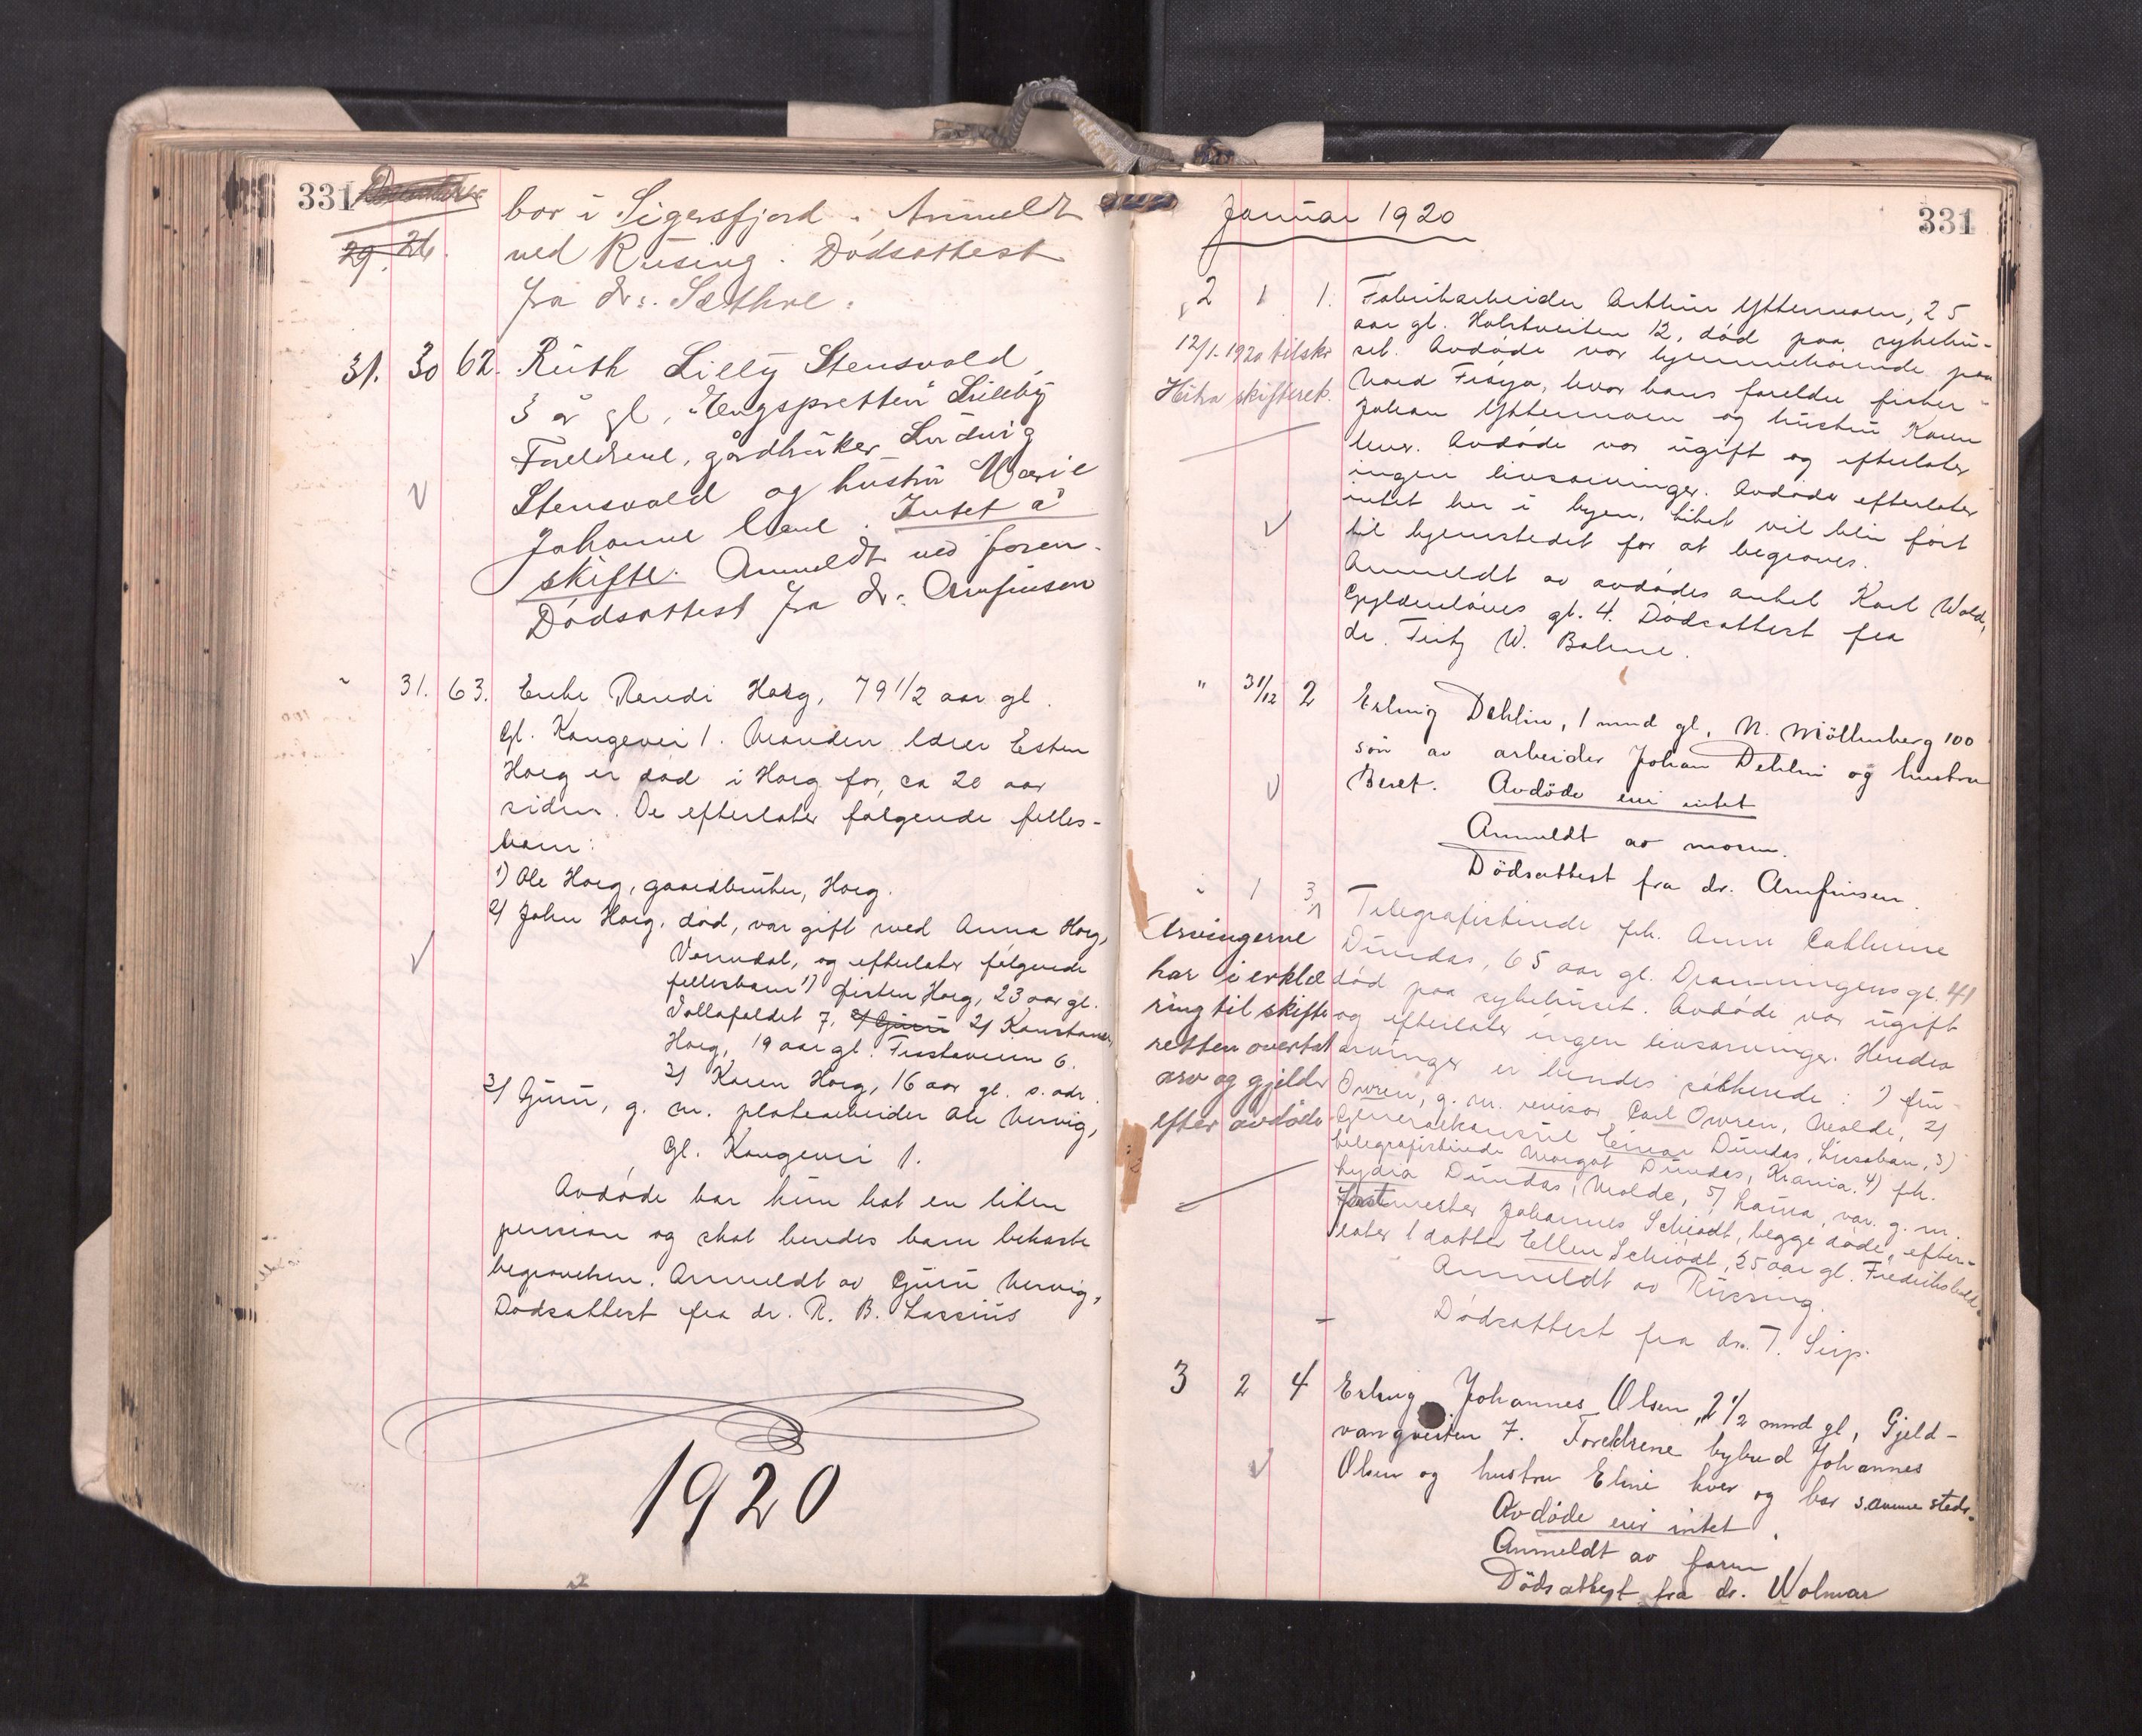 331
29. 26.
bor i Sigersfjord. Anmeldt
ved Rusing. Dödsattest
fra dr. Sæthre.
31. 30 62. Ruth Lilly Stensvold,
3 år gl, "Engspretten" Lilleby
Foreldrene, gårdbruker Ludvig
Stensvold og hustru Marie
Johanne. Intet å
skifte. Anmeldt ved faren.
Dödsattest fra dr. Arnfinsen
" 31. 63. Enke Randi Horg, 79 1/2 aar gl.
Gl. Kongevei 1. Manden lærer Esten
Horg er död i Horg for ca 20 aar
siden. De efterlater følgende felles-
barn:
1) Ole Horg, gaardbruker, Horg.
2) John Horg, död, var gift med Anna Horg,
og efterlater følgende
fellesbarn 1) Horg, 23 aar gl.
Vollafaldet 7, 2) Guru 2) Konstanse
Horg, 19 aar gl. 6.
3) Karen Horg, 16 aar gl. s. adr.
3) Guru, g. m. platearbeider Ole Vervig,
Gl. Kongevei 1.
Avdøde har kun hat en liten
pension og skal hendes barn bekoste
begravelsen. Anmeldt av Guru Vervig,
Dödsattest fra dr. R. B. Lassius
1920
Januar 1920
331
2 1 1. Fabrikarbeider Arthur Yttermoen, 25
aar gl. Holstveiten 12, död paa sykehu-
12/1-1920 tilskr
set. Avdöde var hjemmehörende paa
Hitra skifteret.
Nord Fröya, hvor hans foreldre fisker
Johan Yttermoen og hustru Karen
lever. Avdöde var ugift og efterlater
ingen livsarvinger. Avdöde efterlater
intet her i byen. Liket vil bli fört
til hjemstedet for at begraves.
Anmeldt av avdödes onkel Karl Wold,
Gyldenlöves gt. 4. Dödsattest fra
dr. Fritz W. Bohne.
" 31/12 2 Erling Dehlin, 1 mnd gl, N. Möllenberg 100
sön av arbeider Johan Dehlin og hustru
Beret. Avdöde eier intet
Anmeldt av moren.
Dödsattest fra dr. Arnfinsen.
" 1 3 Telegrafistinde frk. Anna Cathrine
Dundas, 65 aar gl. Dronningens gt. 41
död paa sykehuset. Avdöde var ugift
og efterlater ingen livsarvinger. Hendes
arvinger er hendes söskende: 1) fru
Owren, g. m. revisor Carl Owren, Molde, 2)
Generalkonsul Einar Dundas, Lissabon, 3)
telegrafistinde Margot Dundas, Krania. 4) frk.
Lydia Dundas, Molde, 5) Laura, var g. m.
Postmester Johannes Schiödt, begge döde, efter-
later 1 datter Ellen Schiödt, 25 aar gl. Fredrikshald.
Anmeldt av Russing.
Dödsattest fra dr. T. Seip.
Arvingerne
har i erklæ
ring til skifte
retten overtat
arv og gjeld
efter avdöde
3 2 4 Erling Johannes Olsen, 2 1/2 mnd gl, Gjeld-
vangveiten 7. Foreldrene bybud Johannes
Olsen og hustru Eline lever og bor samme steds.
Avdöde eier intet.
Anmeldt av faren
Dödsattest fra dr. Wolmar